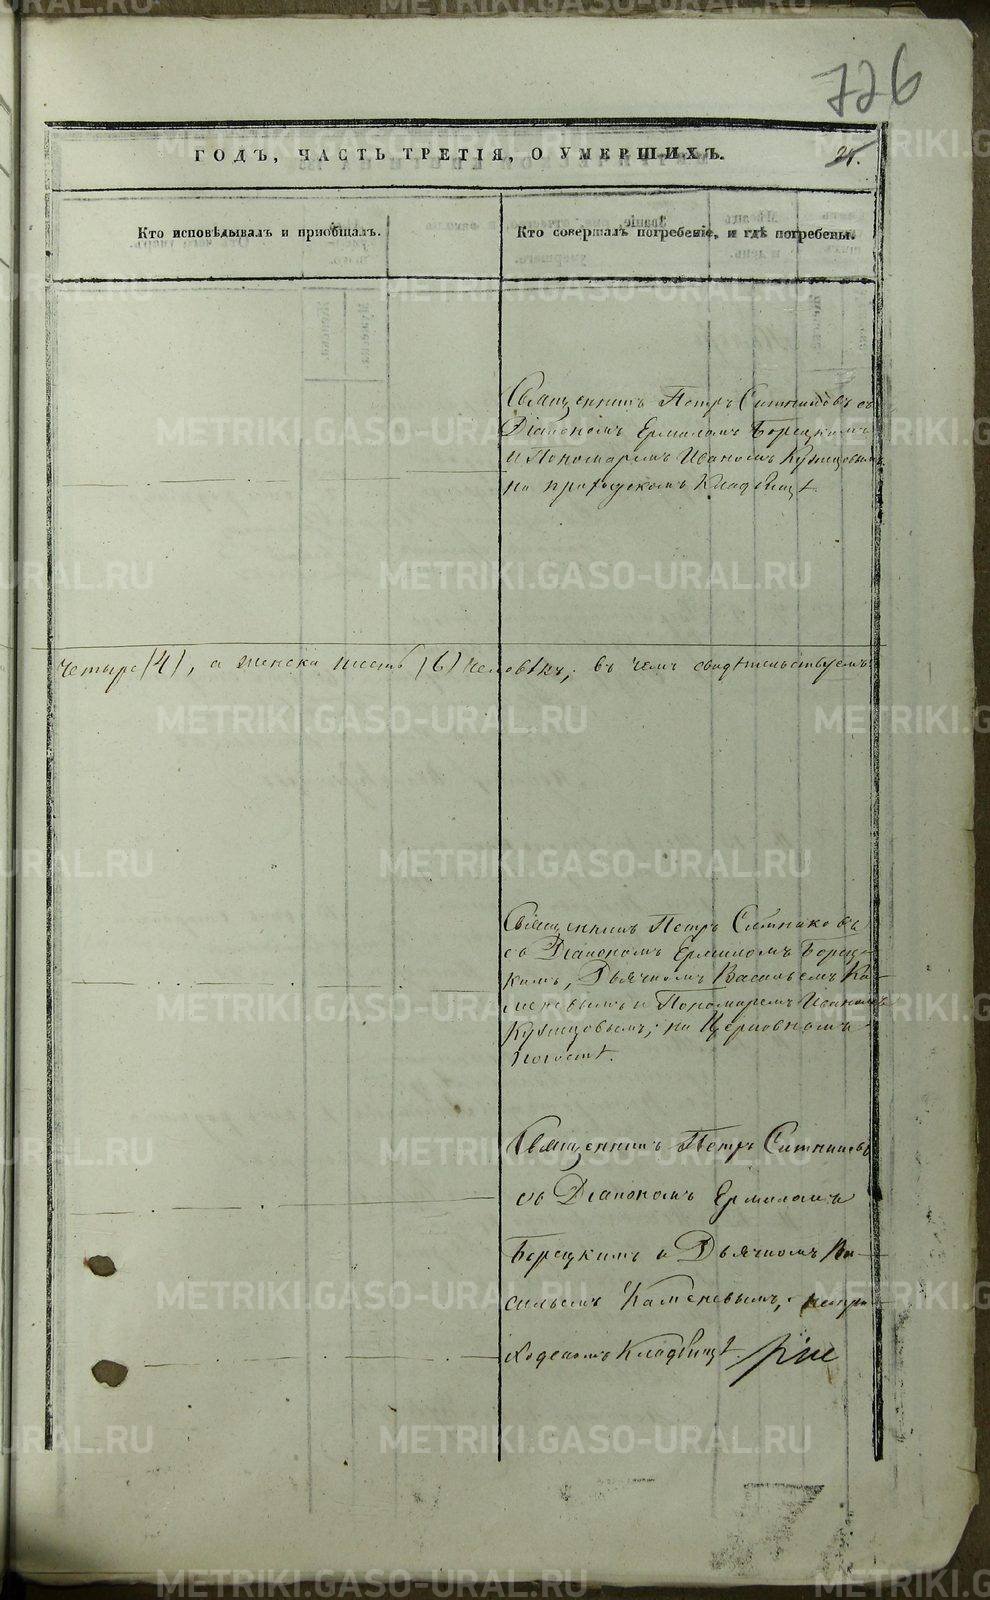 726
ГОДЪ, ЧАСТЬ ТРЕТІЯ, О УМЕРШИХЪ.
Кто исповѣдывалъ и приобщалъ.
Кто совершалъ погребеніе, и гдѣ погребены.
Священникъ Петръ Ситниковъ съ
Діакономъ Ермиломъ Борецкимъ
и Пономаремъ Иваномъ Кузнецовымъ
на приходскомъ Кладбищѣ.
четыре (4), а женска шесть (6) человѣкъ; въ чемъ свидѣтельствуемъ
Священникъ Петръ Ситниковъ
съ Діакономъ Ермиломъ Борец-
кимъ, Дьячкомъ Васильемъ Ка-
меневымъ и Пономаремъ Иваномъ
Кузнецовымъ; на Церковномъ
погостѣ.
Священникъ Петръ Ситниковъ
съ Діакономъ Ермиломъ
Борецкимъ и Дьячкомъ Ва-
сильемъ Каменевымъ,
ходскомъ Кладбищѣ.
METRIKI.GASO-URAL.RU